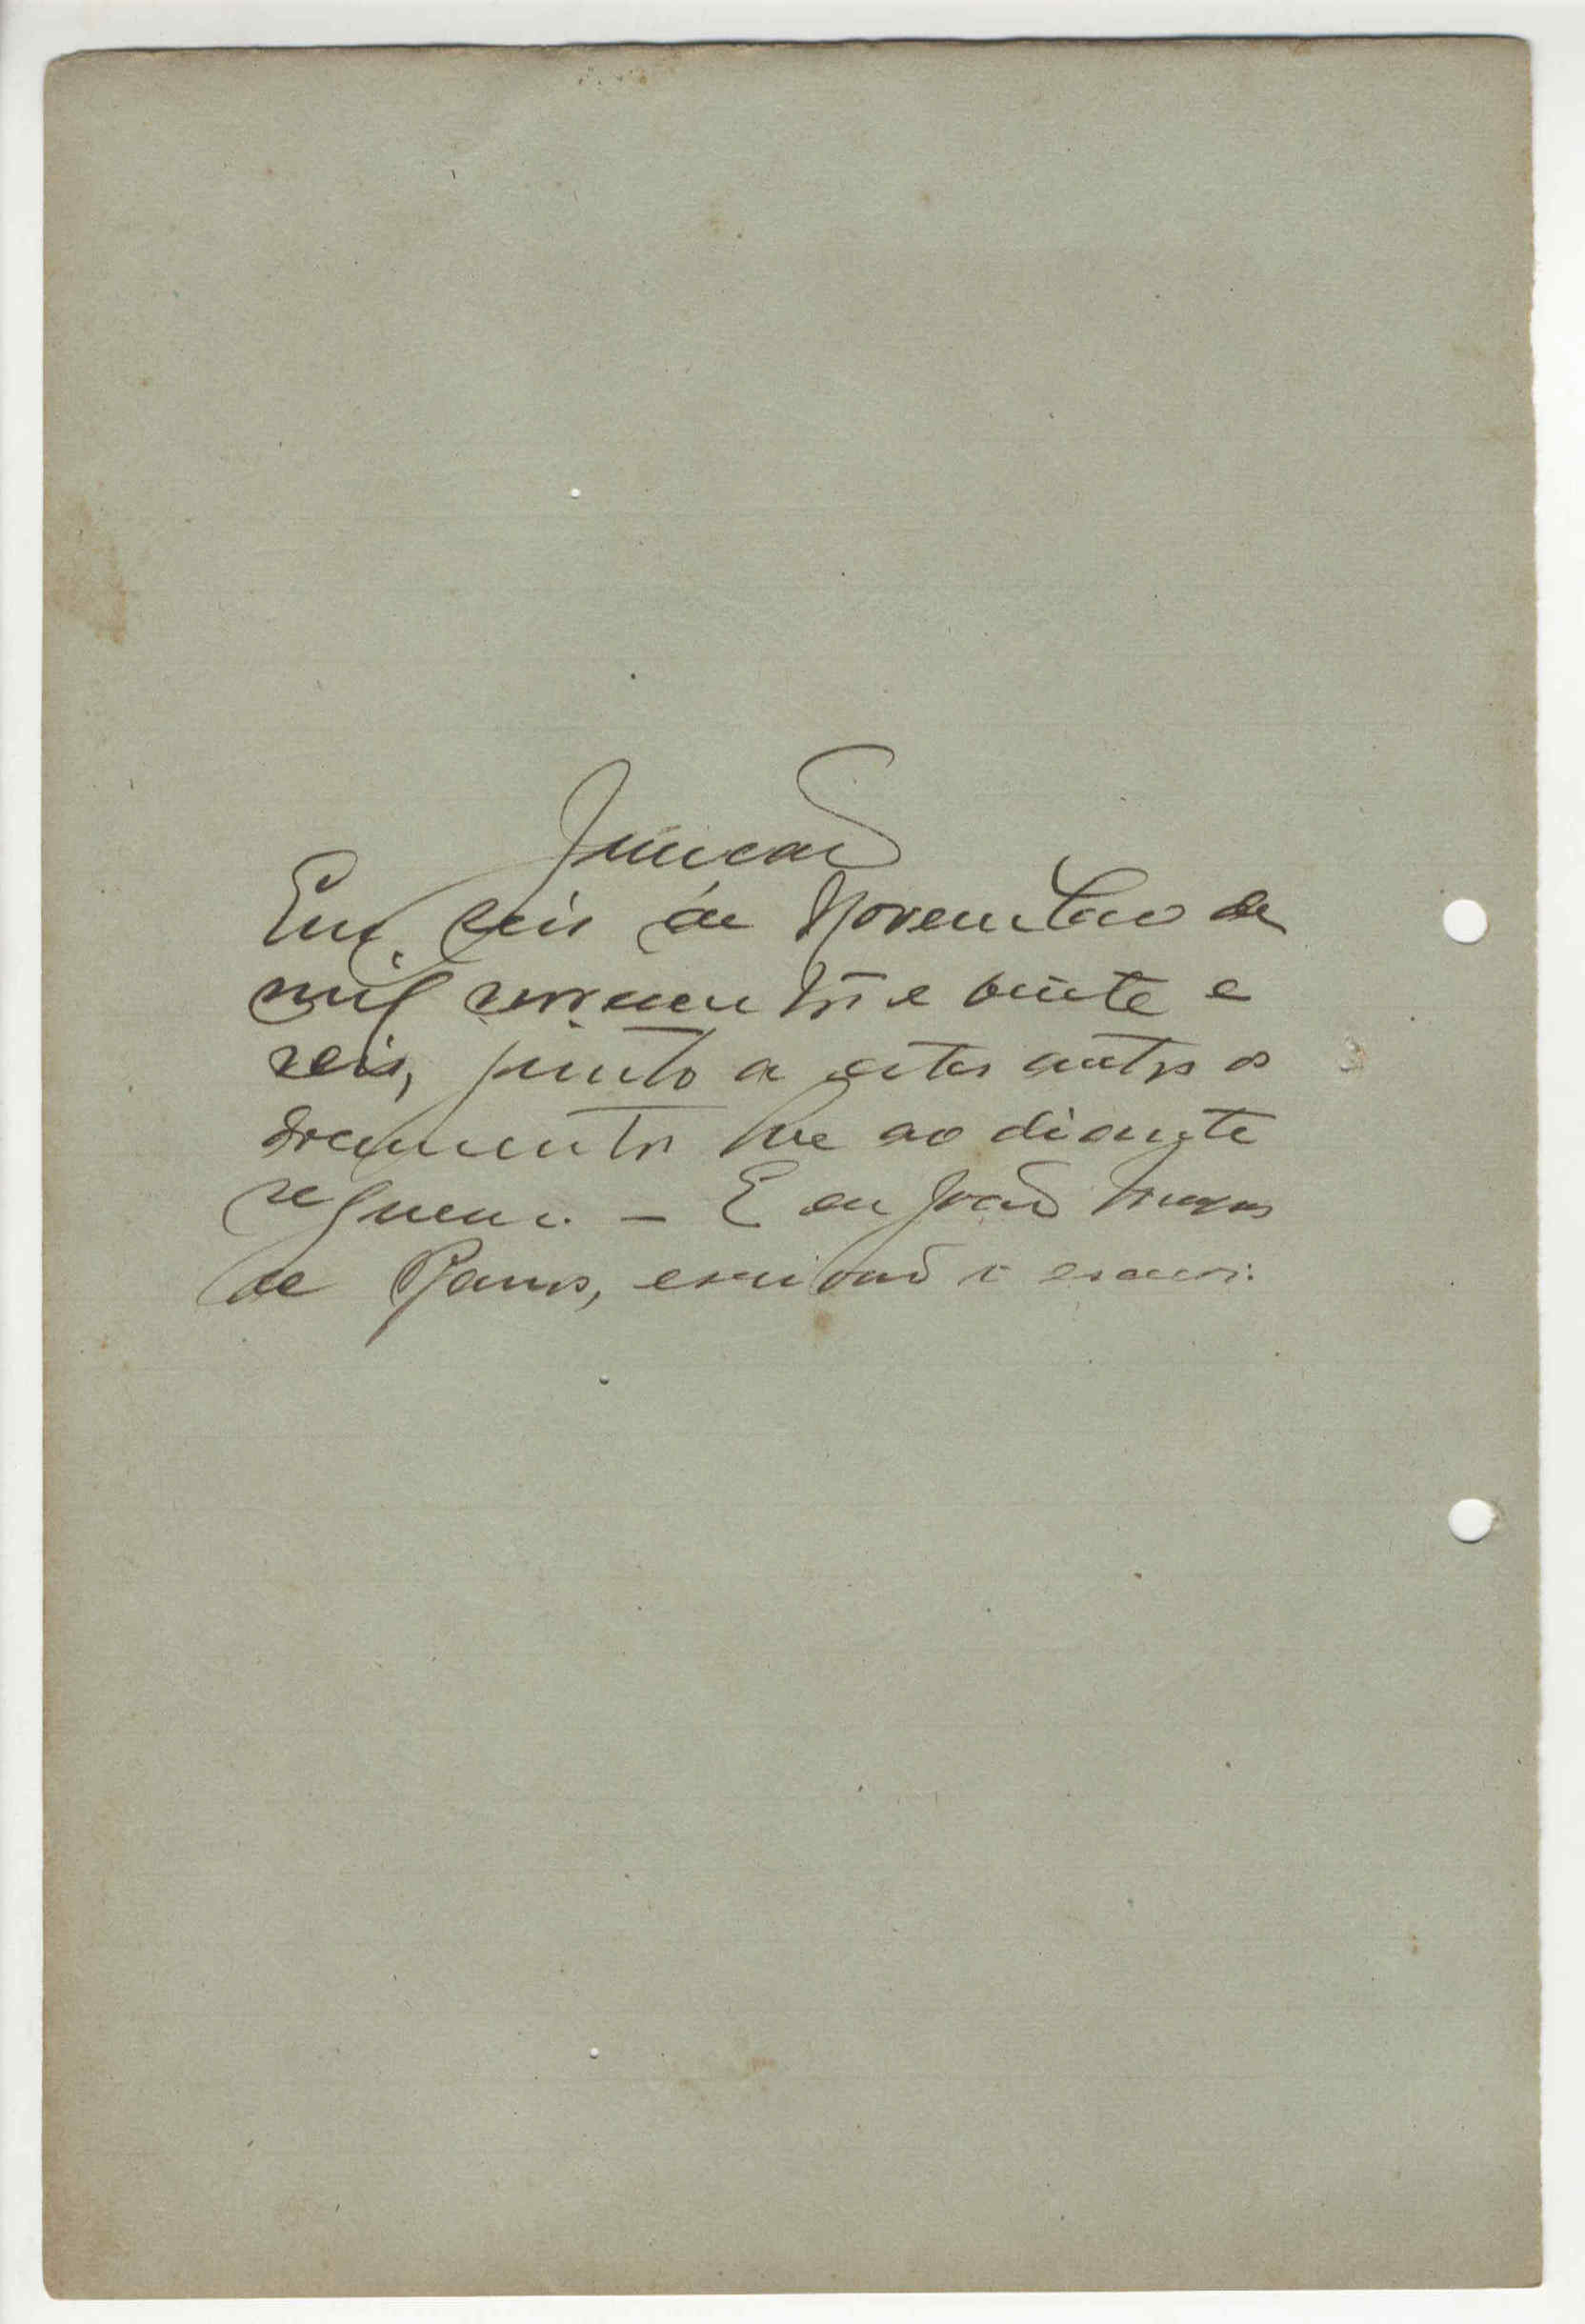 Junção
Em seis de Novembro de
mil novecentos e vinte e
seis, junto a estes autos os
documentos que ao diante
seguem. – E eu João
de Ramos, escrivão o escrevi.